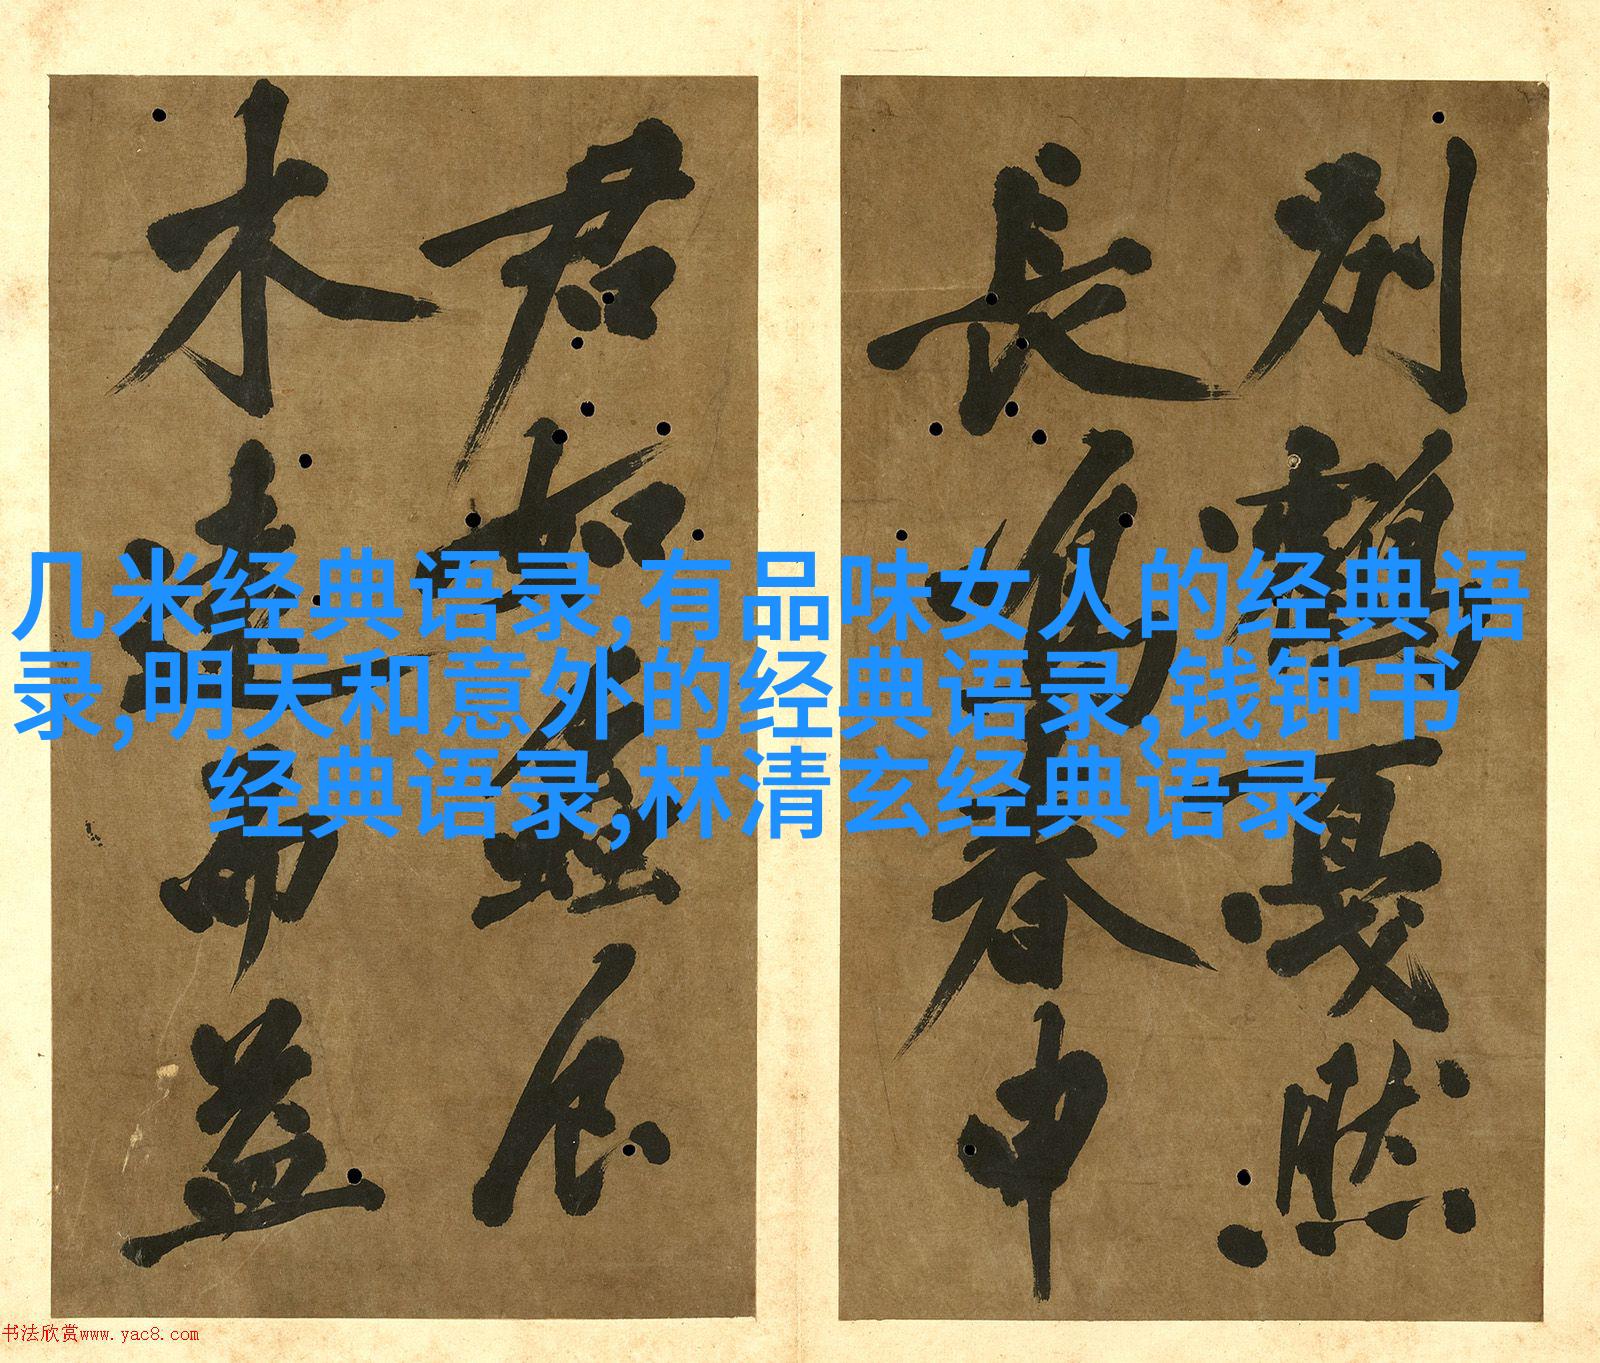 别鹤戛然
長鳴春申
君如蛙居
木達命益
几米经典语录,有品味女人的经典语
录,明天和意外的经典语录,钱钟书
经典语录,林清玄经典语录
书法欣赏www.yac8.com